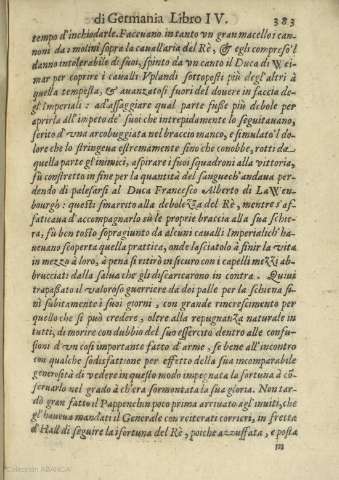 di Germania Libro IV. 383
tempo d'inchiodarle. Faceuano in tanto vn gran macello i can-
noni da i molini sopra la cauallaria del Rè, & egli compreso'l
danno intolerabile de' suoi, spinto da vn canto il Duca di VVei-
mar per coprire i caualli Vplandi sottoposti più degl'altri à
quella tempesta, & auanzatosi fuori del douere in faccia de-
gl'Imperiali: ad'assaggiare qual parte fusse più debole per
aprirla all'impeto de' suoi che intrepidamente lo seguitauano,
ferito d'vna arcobuggiata nel braccio manco, e stimulato'l do-
lore che lo stringeua estremamente sino che conobbe, rotti da
quella parte gl'inimici, aspirare i suoi squadroni alla vittoria,
fù constretto in fine per la quantità del sangue ch'andaua per-
dendo di palesarsi al Duca Francesco Alberto di LavVen-
bourgh: questi smarrito alla debolezza del Rè, mentre s'af-
faticaua d'accompagnarlo sù le proprie braccia alla sua schie-
ra, fù ben tosto sopragiunto da alcuni caualli Imperiali ch'ha-
ueuano scoperta quella prattica, onde lasciatolo à finir la vita
in mezzo à loro, à pena si ritirò in securo con i capelli mezzi ab-
brucciati dalla salua che gli discaricarono in contra. Quiui
trapassato il valoroso guerriere da doi palle per la schiena fi-
nì subitamente i suoi giorni, con grande rincrescimento per
quello che si può credere, oltre alla repugnanza naturale in
tutti, di morire con dubbio del suo essercito dentro alle confu-
sioni d'vn così importante fatto d'arme, se bene all'incontro
con qualche sodisfattione per effetto della sua incomparabile
generosità di vedere in questo modo impegnata la fortuna à cõ-
seruarlo nel grado à ch'era sormontata la sua gloria. Non tar-
dò gran fatto il Pappenehin poco prima arriuato agl'inuiti, che
gl'haueua mandati il Generale con reiterati corrieri, in fretta
d'Hall di seguire la isfortuna del Rè, poiche azzuffata, e posta
in
Colección ABANCA